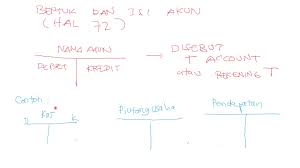 BENTUK DAN ISI AKUN
(HAL 72)
NAMA AKUN
DEBET KREDIT
DISEBUT
T ACCOUNT
atau REKENING T
Contoh
Kas
D K
Piutang usaha
Pendapatan